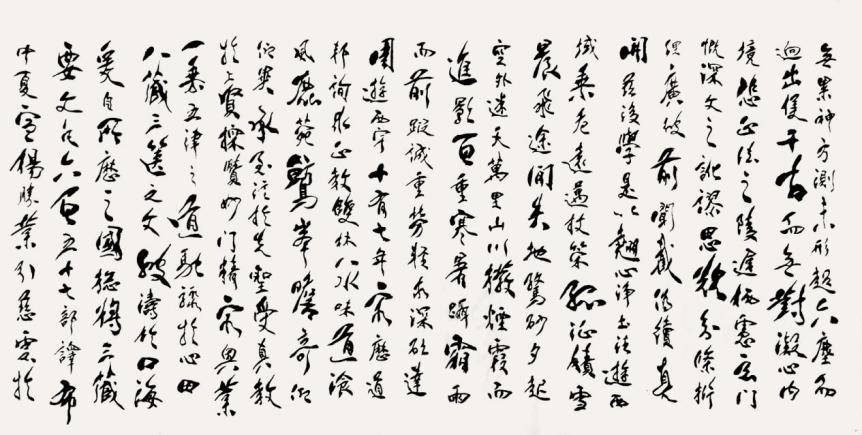 無累神方測未形超六塵而
迥出隻千古而無對凝心內
境悲正法之陵遲栖慮玄門
慨深文之訛謬思欲分條析
理廣彼前聞截偽續真
開茲後學是以翹心淨土法遊西
域乘危遠邁杖策孤征積雪
晨飛途間失地驚砂夕起
空外迷天萬里山川撥煙霞而
進影百重寒暑躡霜雨
而前蹤誠重勞輕求深欲達
周遊西宇十有七年窮歷道
邦詢求正教雙林八水味道飡
風鹿菀鷲峯瞻奇仰
異承至言於先聖受真教
於上賢探賾妙門精窮奧業
一乘五律之道馳驟於心田
八藏三篋之文波濤於口海
爰自所歷之國總將三藏
要文凡六百五十七部譯布
中夏宣揚勝業引慈雲於